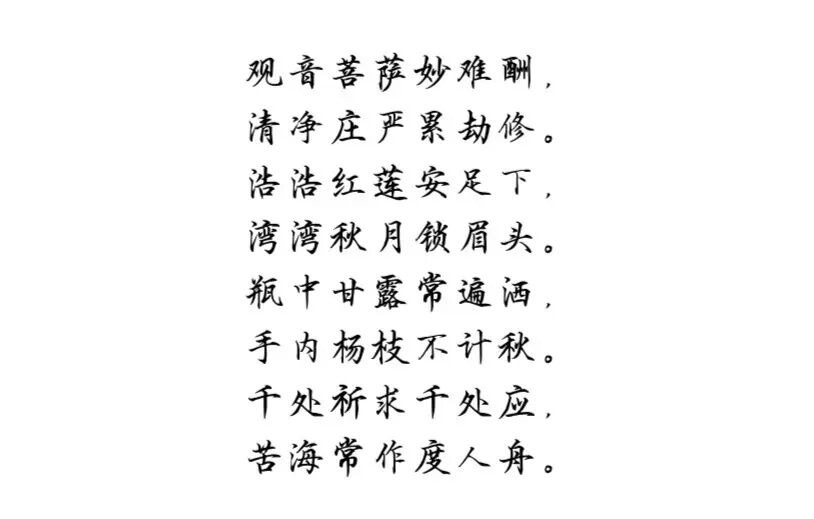 观音菩萨妙难酬，
清净庄严累劫修。
浩浩红莲安足下，
湾湾秋月锁眉头。
瓶中甘露常遍洒，
手内杨枝不计秋。
千处祈求千处应，
苦海常作度人舟。